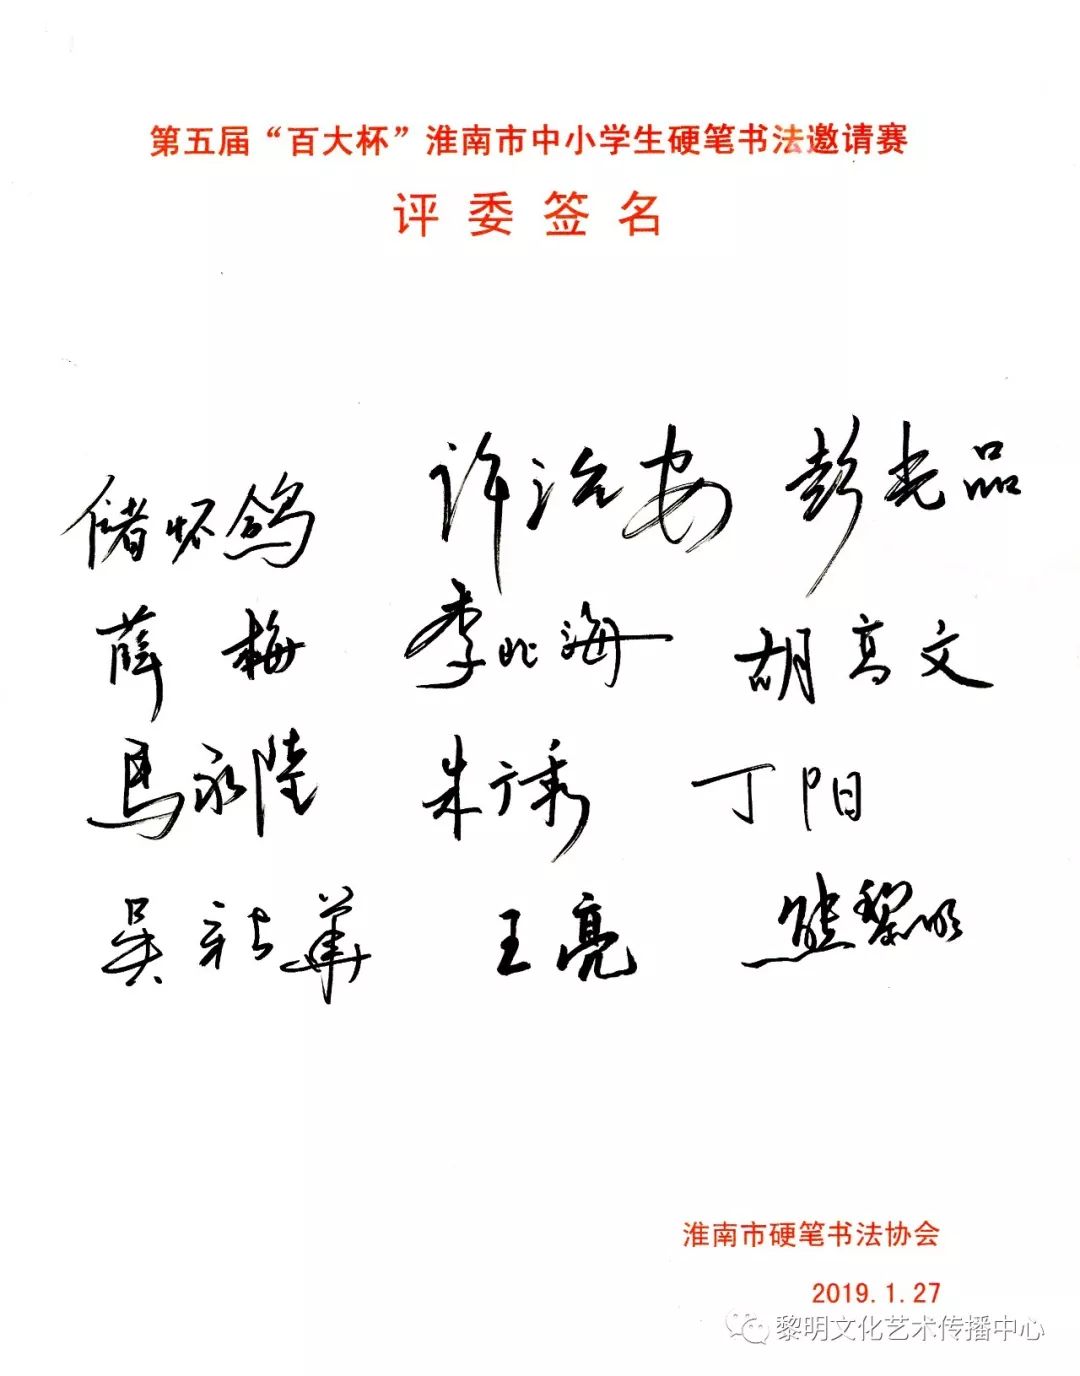 第五届“百大杯”淮南市中小学生硬笔书法邀请赛
评委签名
储怀鸽 许治安 彭光品
薛梅 李北海 胡高文
马永陆 朱广秀 丁阳
吴新华 王亮 熊黎明
淮南市硬笔书法协会
2019.1.27
黎明文化艺术传播中心